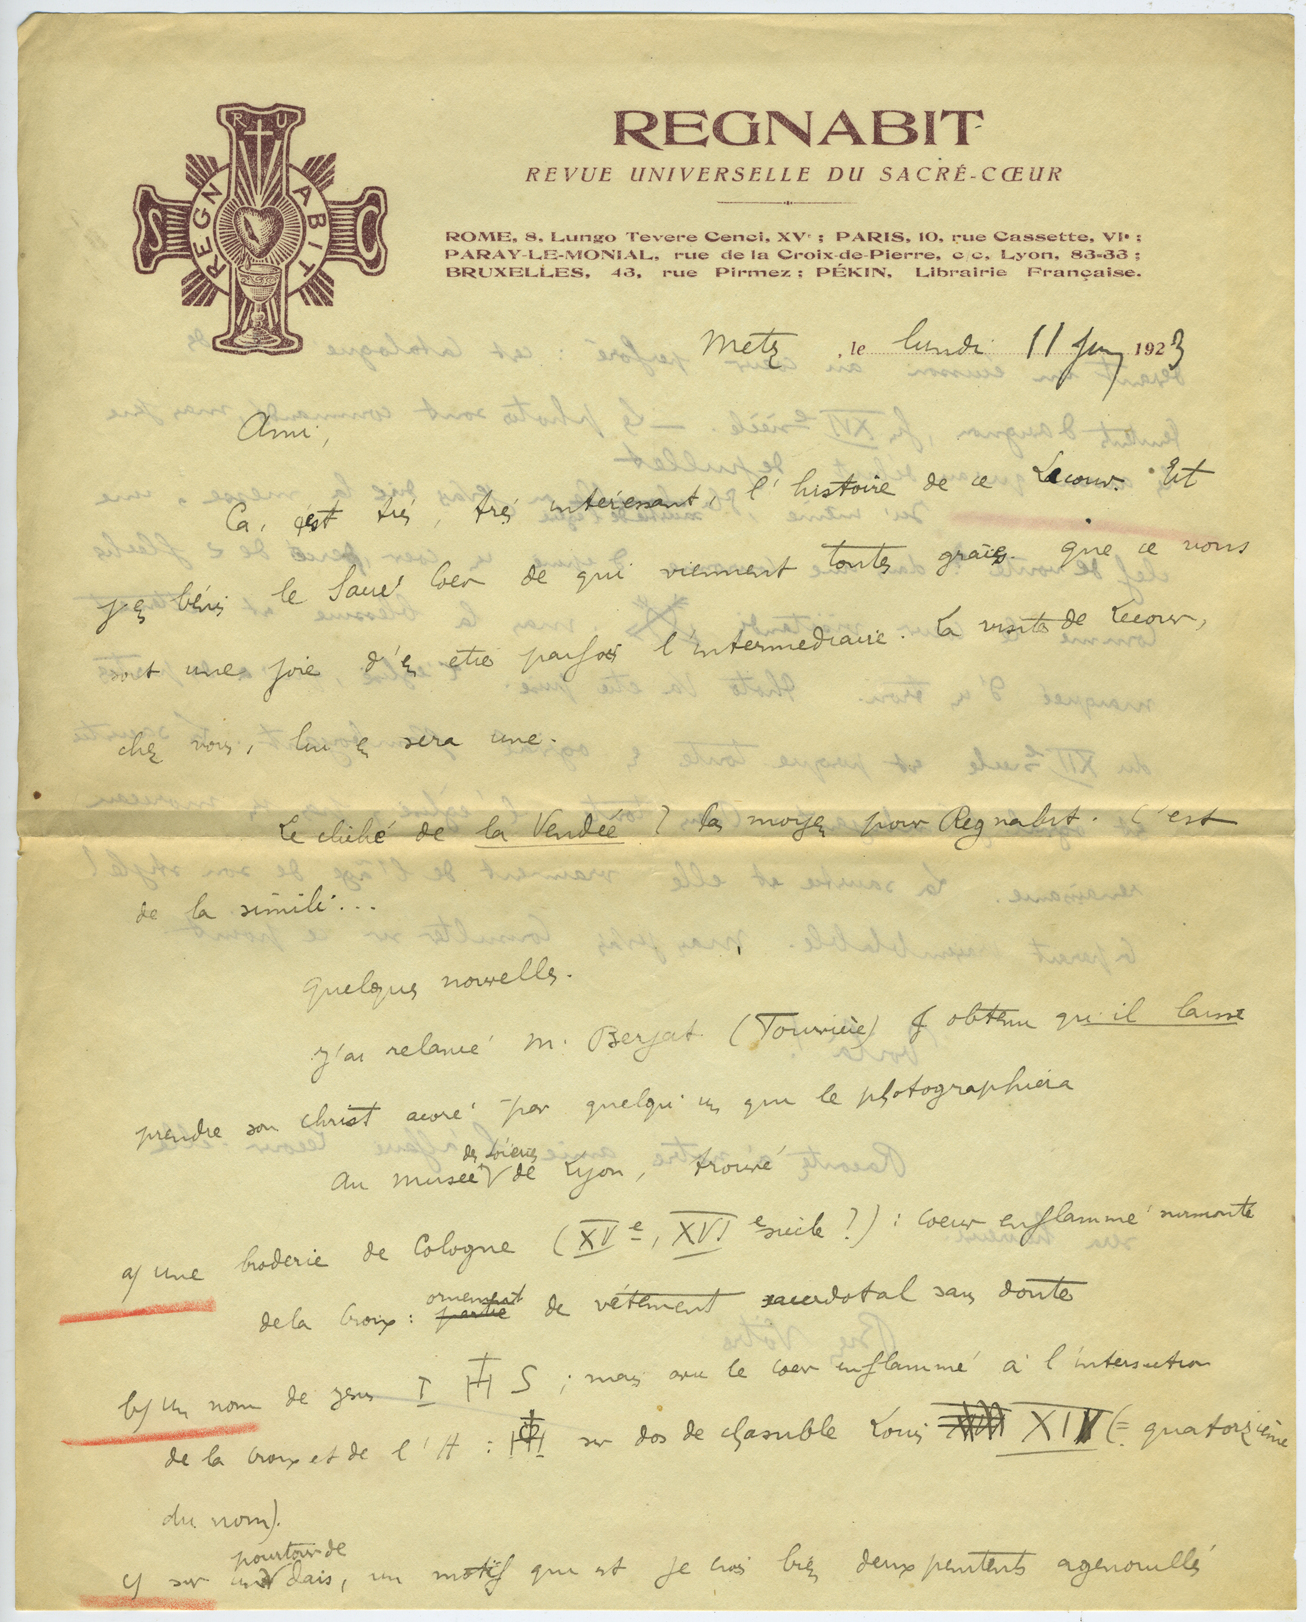 R U
S REGNABIT C
REGNABIT
REVUE UNIVERSELLE DU SACRÉ-CŒUR
ROME, 8, Lungo Tevere Cenci, XVe ; PARIS, 10, rue Cassette, VIe ;
PARAY-LE-MONIAL, rue de la Croix-de-Pierre, c/c, Lyon, 83-33 ;
BRUXELLES, 43, rue Pirmez ; PÉKIN, Librairie Française.
Metz, le lundi 11 Juin 1923
Ami,
Ça, c'est très, très intéressant, l'histoire de ce Lecour. Et
j'en bénis le Sacré Coeur de qui viennent toutes grâces. que ce vous
soit une joie d'en être parfois l'intermédiaire. La visite de Lecour,
chez vous, lui en sera une.
Le cliché de la Vendée ? pas moyen pour Regnabit. C'est
de la simili...
Quelques nouvelles.
J'ai relancé M. Berjat (Tourvière) & obtenu qu'il laisse
prendre son christ acoré par quelqu'un que le photographiera
Au musée des soieries de Lyon, trouvé
a) une broderie de Cologne (XVe, XVIe siècle ?) : coeur enflammé surmonté
de la Croix : partie ornement de vêtement sacerdotal sans doute
b) un nom de Jesus I H S ; mais avec le coeur enflammé à l'intersection
de la croix et de l'H : H sur dos de chasuble Louis XIV (= quatorzième
du nom).
c) sur un pourtour de dais, un motif qui est je crois bien deux pénitents agenouillés